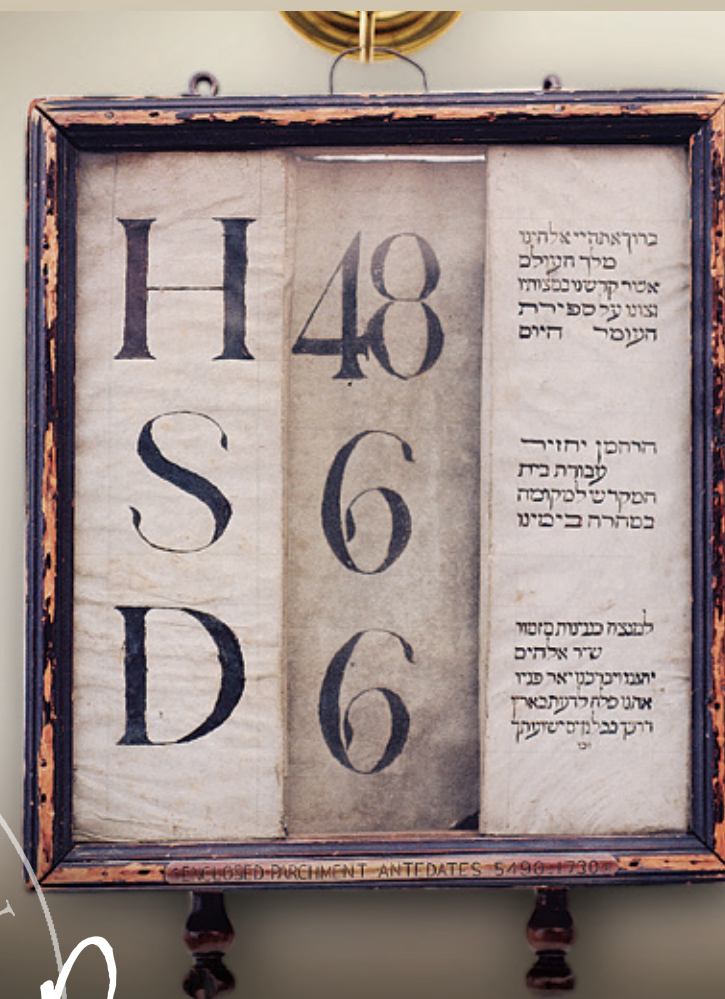 H 48
S 6
D 6
ברוך אתה יי אלהינו
מלך העולם
אשר קדשנו במצותיו
וצונו על ספירת
העומר היום
הרחמן יחזיר
עבודת בית
המקדש למקומה
במהרה בימינו
למנצח בנגינות מזמור
שיר אלהים
יחננו ויברכנו יאר פניו
אתנו סלה לדעת בארץ
דרכך בכל גוים ישועתך
וכו
ENCLOSED PARCHMENT ANTEDATES 5490-1730